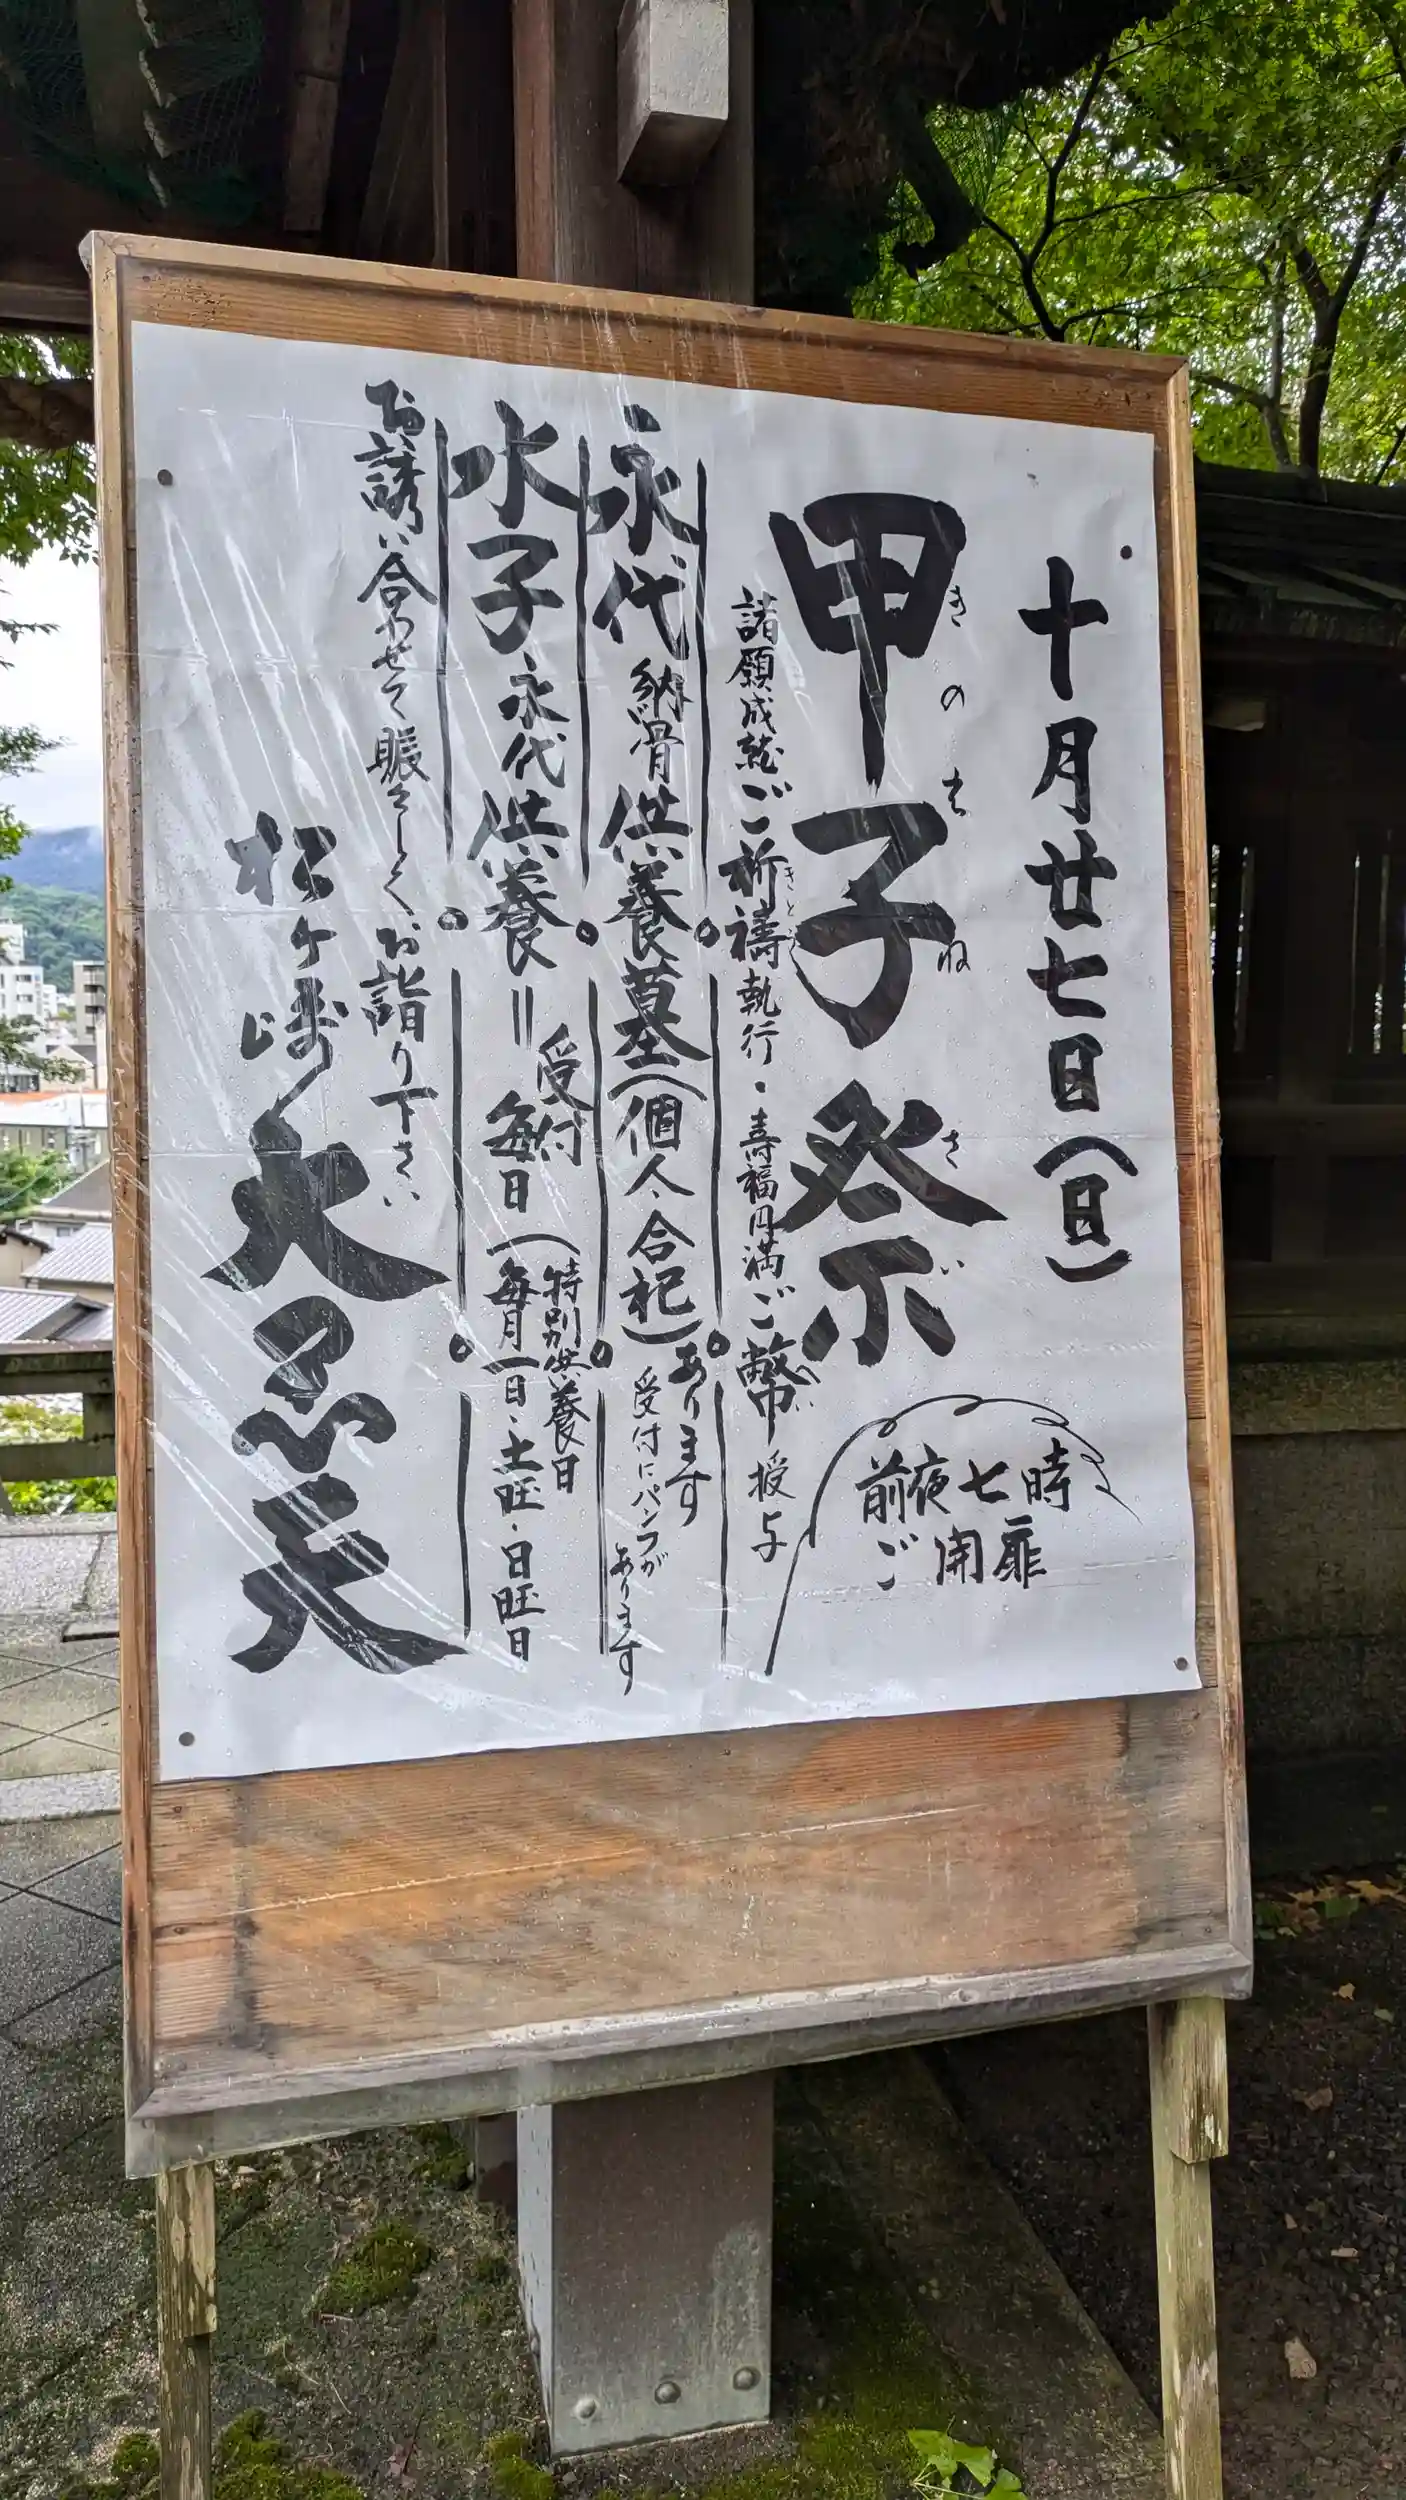 十月廿七日(日)
甲子祭
きのえね さい
前夜七時
ご開扉
諸願成就ご祈禱執行・寿福円満ご幣授与
きとう
へい
永代納骨供養墓(個人、合祀)あります
受付にパンフが
あります
水子永代供養=受付毎日(特別供養日
毎月一日・土旺・日旺日
お誘い合わせて賑々しく、お詣り下さい
松ヶ崎大黒天